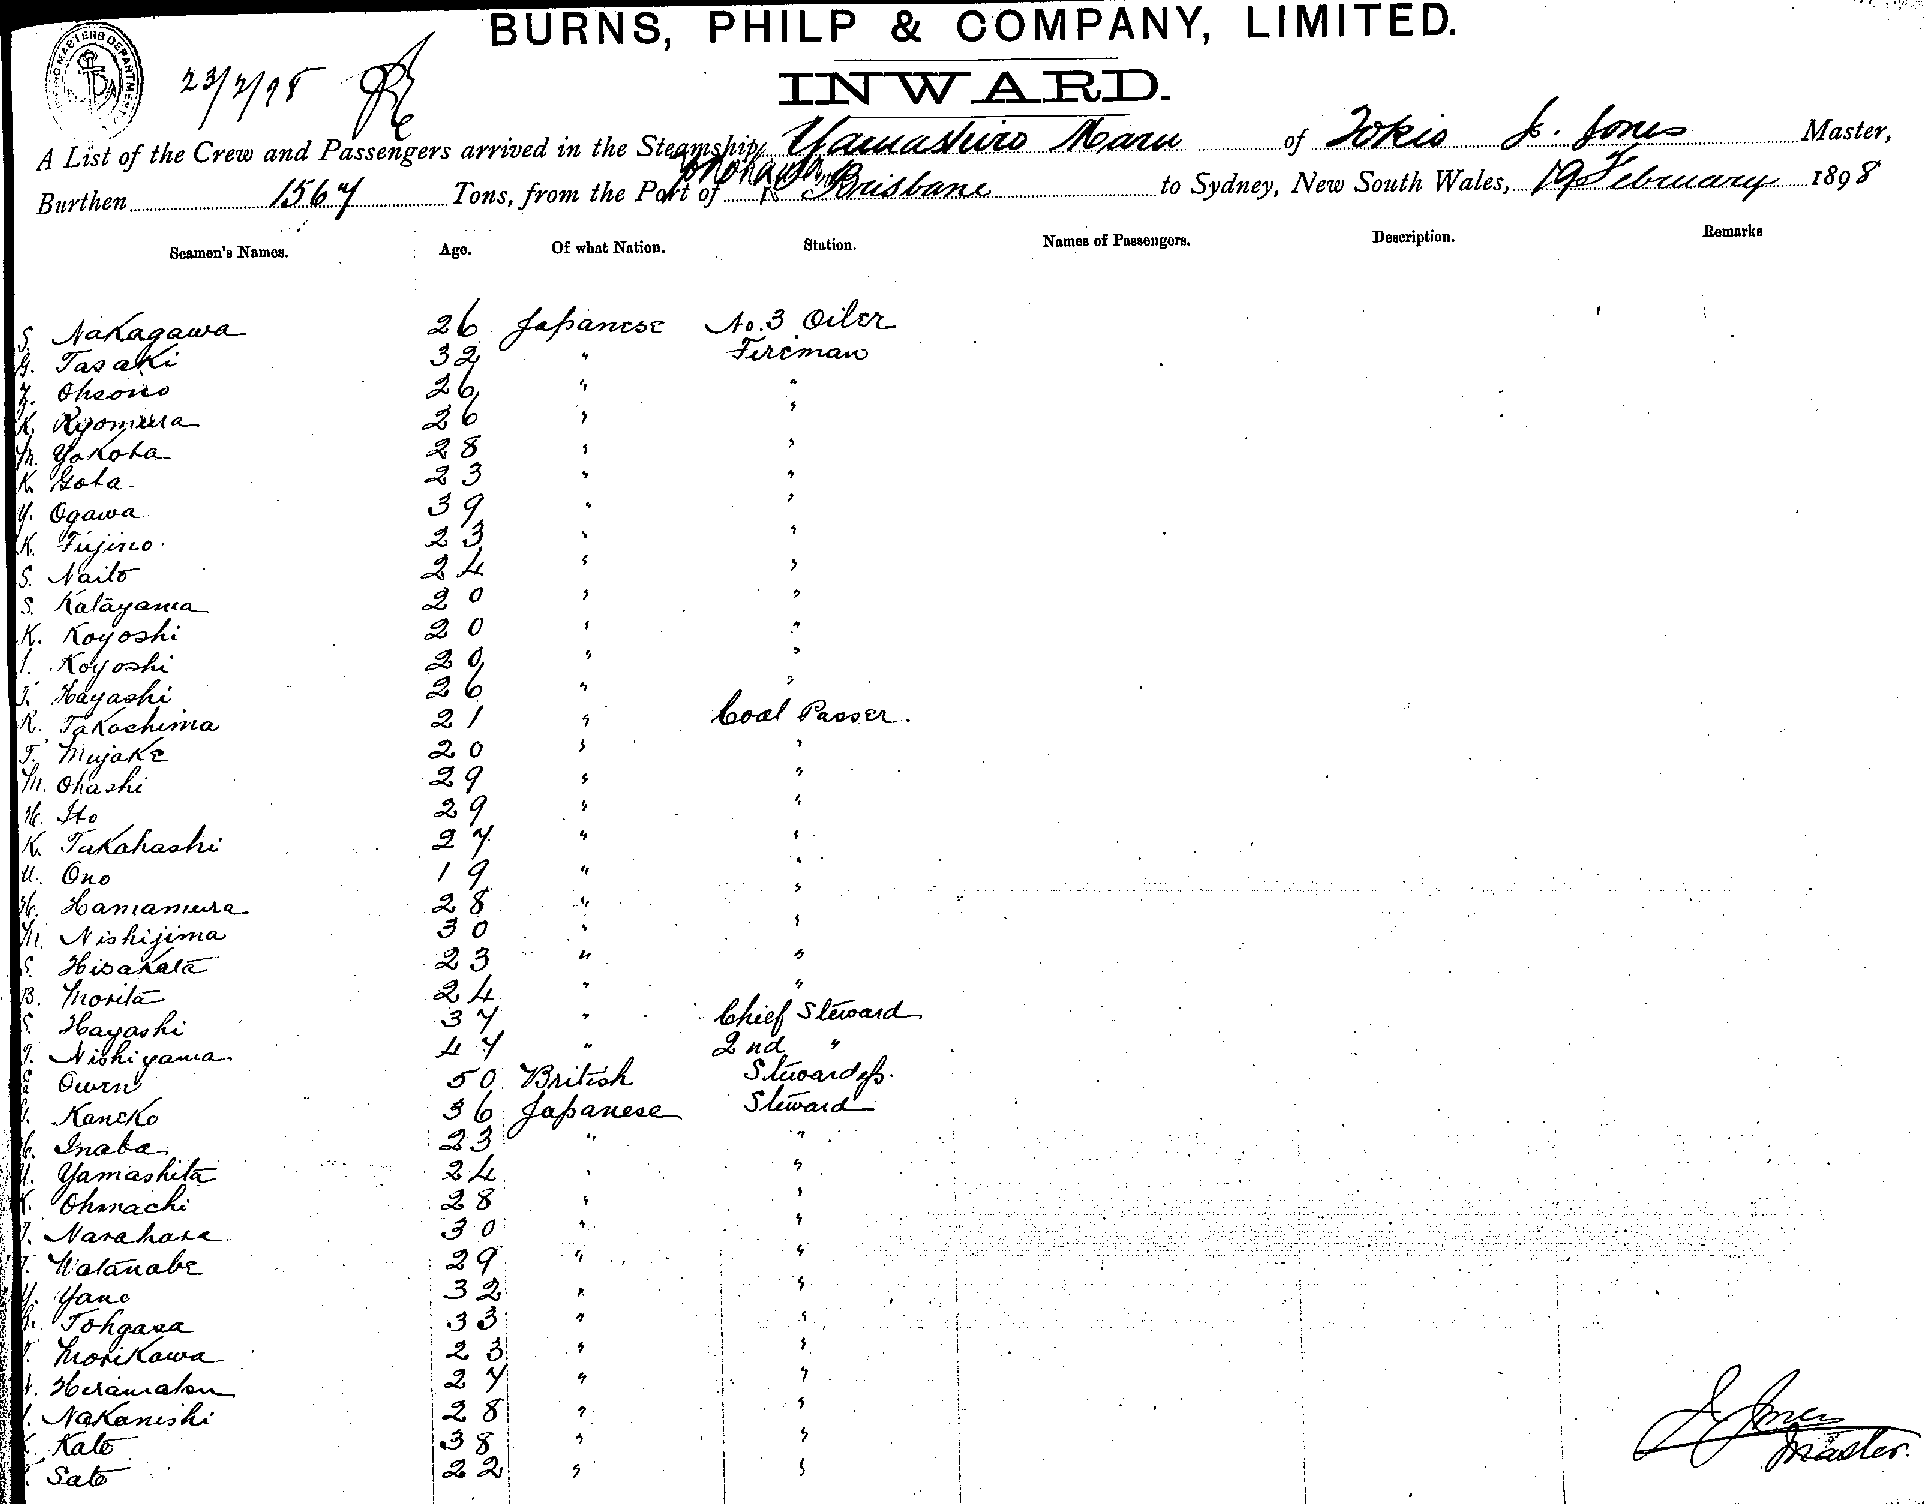 BURNS, PHILP & COMPANY, LIMITED.
23/2/98
INWARD.
A List of the Crew and Passengers arrived in the Steamship Yamashiro Maru of Tokio J. Jones Master,
Burthen 1567 Tons, from the Port of Yokohama Brisbane to Sydney, New South Wales, 19 February 1898
Seamen's Names. Age. Of what Nation. Station. Names of Passengers. Description. Remarks
S. Nakagawa 26 Japanese No. 3 Oiler
G. Tasaki 32 " Fireman
Z. Ohsono 26 " "
K. Kyomura 26 " "
M. Yokota 28 " "
K. Gota 23 " "
Y. Ogawa 39 " "
K. Fujino. 23 " "
S. Naito 24 " "
S. Katayama 20 " "
K. Koyoshi 20 " "
I. Koyoshi 20 " "
T. Hayashi 26 " "
K. Takashima 21 " Coal Passer.
T. Miyake 20 " "
M. Ohashi 29 " "
H. Ito 29 " "
K. Takahashi 27 " "
U. Ono 19 " "
H. Hamamura 28 " "
M. Nishijima 30 " "
S. Hisakata 23 " "
B. Morita 24 " "
S. Hayashi 37 " Chief Steward
Nishiyama 47 " 2nd "
Owen 50 British Stewardess.
Kaneko 36 Japanese Steward
Inaba 23 " "
Yamashita 24 " "
Ohmachi 28 " "
Narahara 30 " "
Watanabe 29 " "
Y. Yano 32 " "
Tohgasa 33 " "
Morikawa 23 " "
Hiramatsu 27 " "
Nakanishi 28 " "
Kato 38 " "
Sato 22 " "
J. Jones
Master.